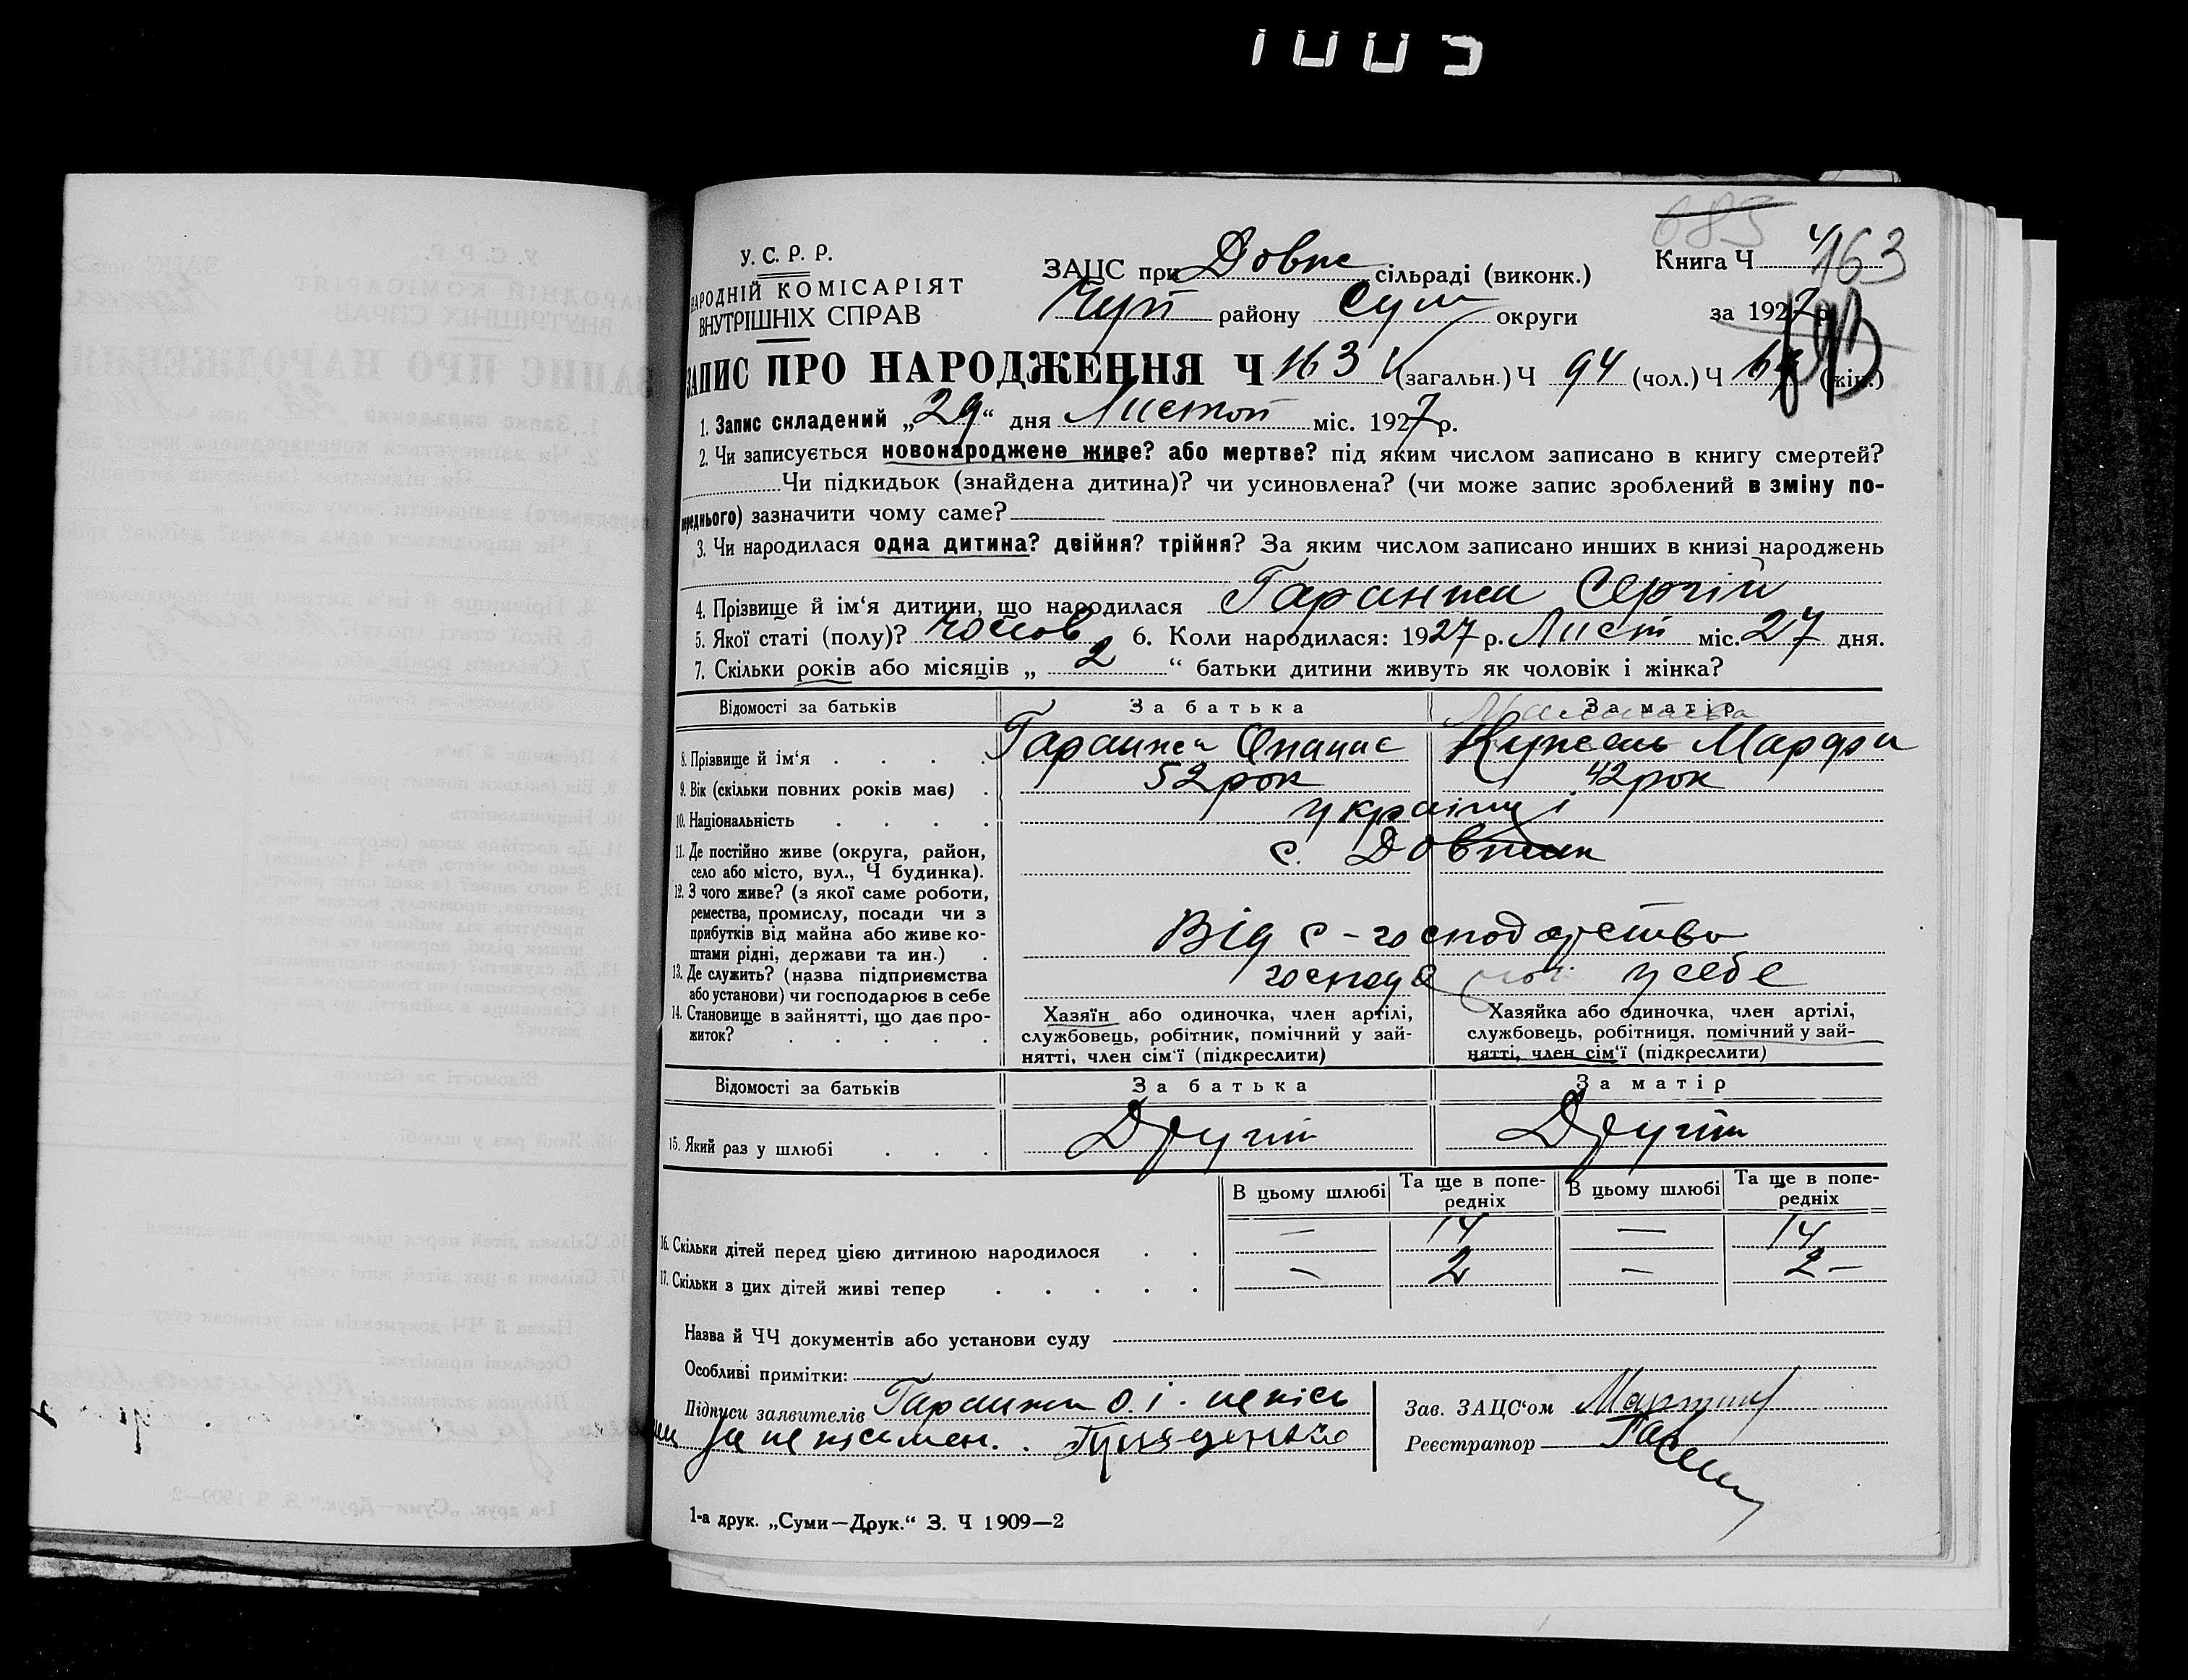 1005
683
У. С. Р. Р.
НАРОДНІЙ КОМІСАРІЯТ
ВНУТРІШНІХ СПРАВ
ЗАЦС при Довж сільраді (виконк.)
Чуп району Сум округи
Книга Ч 163
за 1927 р.
ЗАПИС ПРО НАРОДЖЕННЯ Ч 163 (загальн.) Ч 94 (чол.) Ч (жін.)
1. Запис складений „29“ дня Листоп міс. 1927 р.
2. Чи записується новонароджене живе? або мертве? під яким числом записано в книгу смертей?
Чи підкидьок (знайдена дитина)? чи усиновлена? (чи може запис зроблений в зміну по-
переднього) зазначити чому саме?
3. Чи народилася одна дитина? двійня? трійня? За яким числом записано инших в книзі народжень
4. Прізвище й ім'я дитини, що народилася Гаранжа Сергій
5. Якої статі (полу)? чолов 6. Коли народилася: 1927 р. Лист міс. 27 дня.
7. Скільки років або місяців „ 2 “ батьки дитини живуть як чоловік і жінка?
Відомості за батьків За батька За матір
8. Прізвище й ім'я . . . . Гаранжа Опанас Кужель Марфа
9. Вік (скільки повних років має) . 52 рок 42 рок
10. Національність . . . . українці
11. Де постійно живе (округа, район,
село або місто, вул., Ч будинка). с. Довжик
12. З чого живе? (з якої саме роботи,
ремества, промислу, посади чи з
прибутків від майна або живе ко-
штами рідні, держави та ин.) . Від с-господарства
13. Де служить? (назва підприємства
або установи) чи господарює в себе у себе
14. Становище в зайнятті, що дає про-
житок? . . . . .
Хазяїн або одиночка, член артілі,
службовець, робітник, помічний у зай-
нятті, член сім'ї (підкреслити)
Хазяйка або одиночка, член артілі,
службовець, робітниця, помічний у зай-
нятті, член сім'ї (підкреслити)
Відомості за батьків За батька За матір
15. Який раз у шлюбі . . . Другий Другий
В цьому шлюбі Та ще в попе-
редніх В цьому шлюбі Та ще в попе-
редніх
16. Скільки дітей перед цією дитиною народилося . . — 14 — 14
17. Скільки з цих дітей живі тепер . . . . . — 2 — 2 —
Назва й ЧЧ документів або установи суду
Особливі примітки:
Підписи заявителів Гаранжа О. І. непись
мен за неписьмен.
Зав. ЗАЦС'ом
Реєстратор
1-а друк. „Суми—Друк.“ З. Ч 1909—2